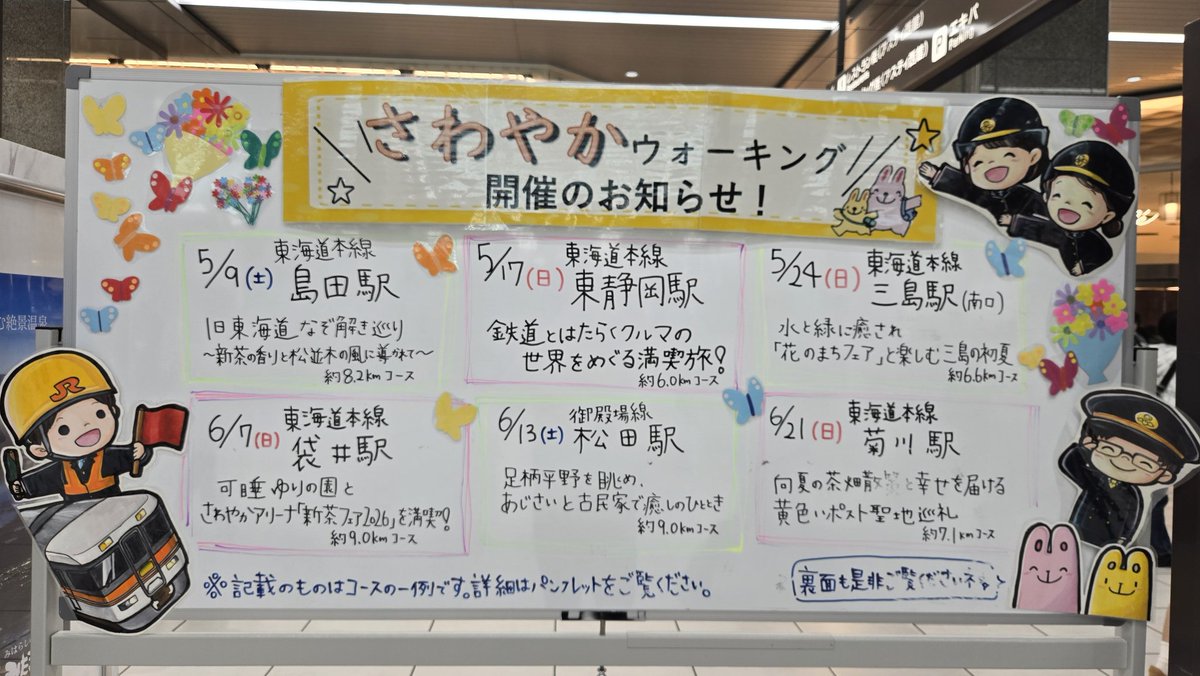 さわやかウォーキング
開催のお知らせ!
5/9(土) 東海道本線
島田駅
旧東海道 なぞ解き巡り
〜新茶の香りと松並木の風に導かれて〜
約8.2kmコース
5/17(日) 東海道本線
東静岡駅
鉄道とはたらくクルマの
世界をめぐる満喫旅!
約6.0kmコース
5/24(日) 東海道本線
三島駅(南口)
水と緑に癒され
「花のまちフェア」と楽しむ三島の初夏
約6.6kmコース
6/7(日) 東海道本線
袋井駅
可睡ゆりの園と
さわやかアリーナ「新茶フェア2026」を満喫!
約9.0kmコース
6/13(土) 御殿場線
松田駅
足柄平野を眺め、
あじさいと古民家で癒しのひととき
約9.0kmコース
6/21(日) 東海道本線
菊川駅
向夏の茶畑散策と幸せを届ける
黄色いポスト聖地巡礼
約7.1kmコース
※記載のものはコースの一例です。詳細はパンフレットをご覧ください。
裏面も是非ご覧くださいネ
JR
む絶景温泉